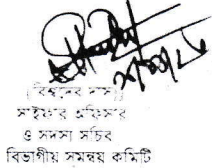 (বিশ্বদেব দাস)
সাইফার অফিসার
ও সদস্য সচিব
বিভাগীয় সমন্বয় কমিটি